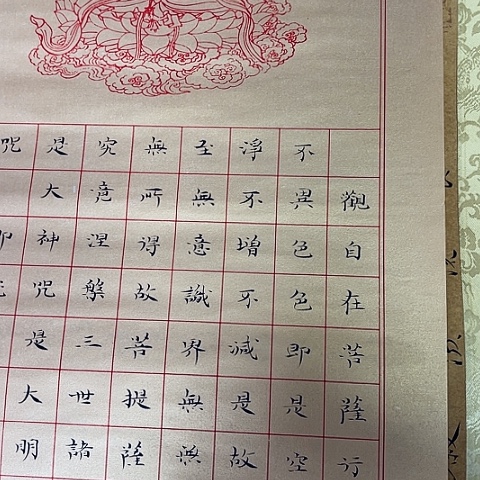 觀自在菩薩行
不異色色即是空
淨不增不減是故
至無意識界無無
無所得故菩提薩
究竟涅槃三世諸
是大神咒是大明
咒